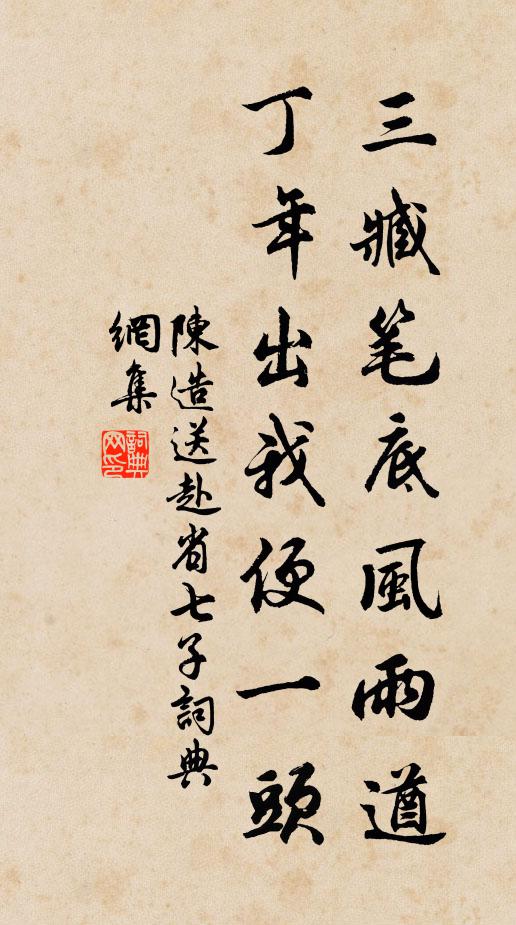 三臧笔底風雨遒
丁年出我便一頭
陳造送赴省七子詞典
網集
詞典网印